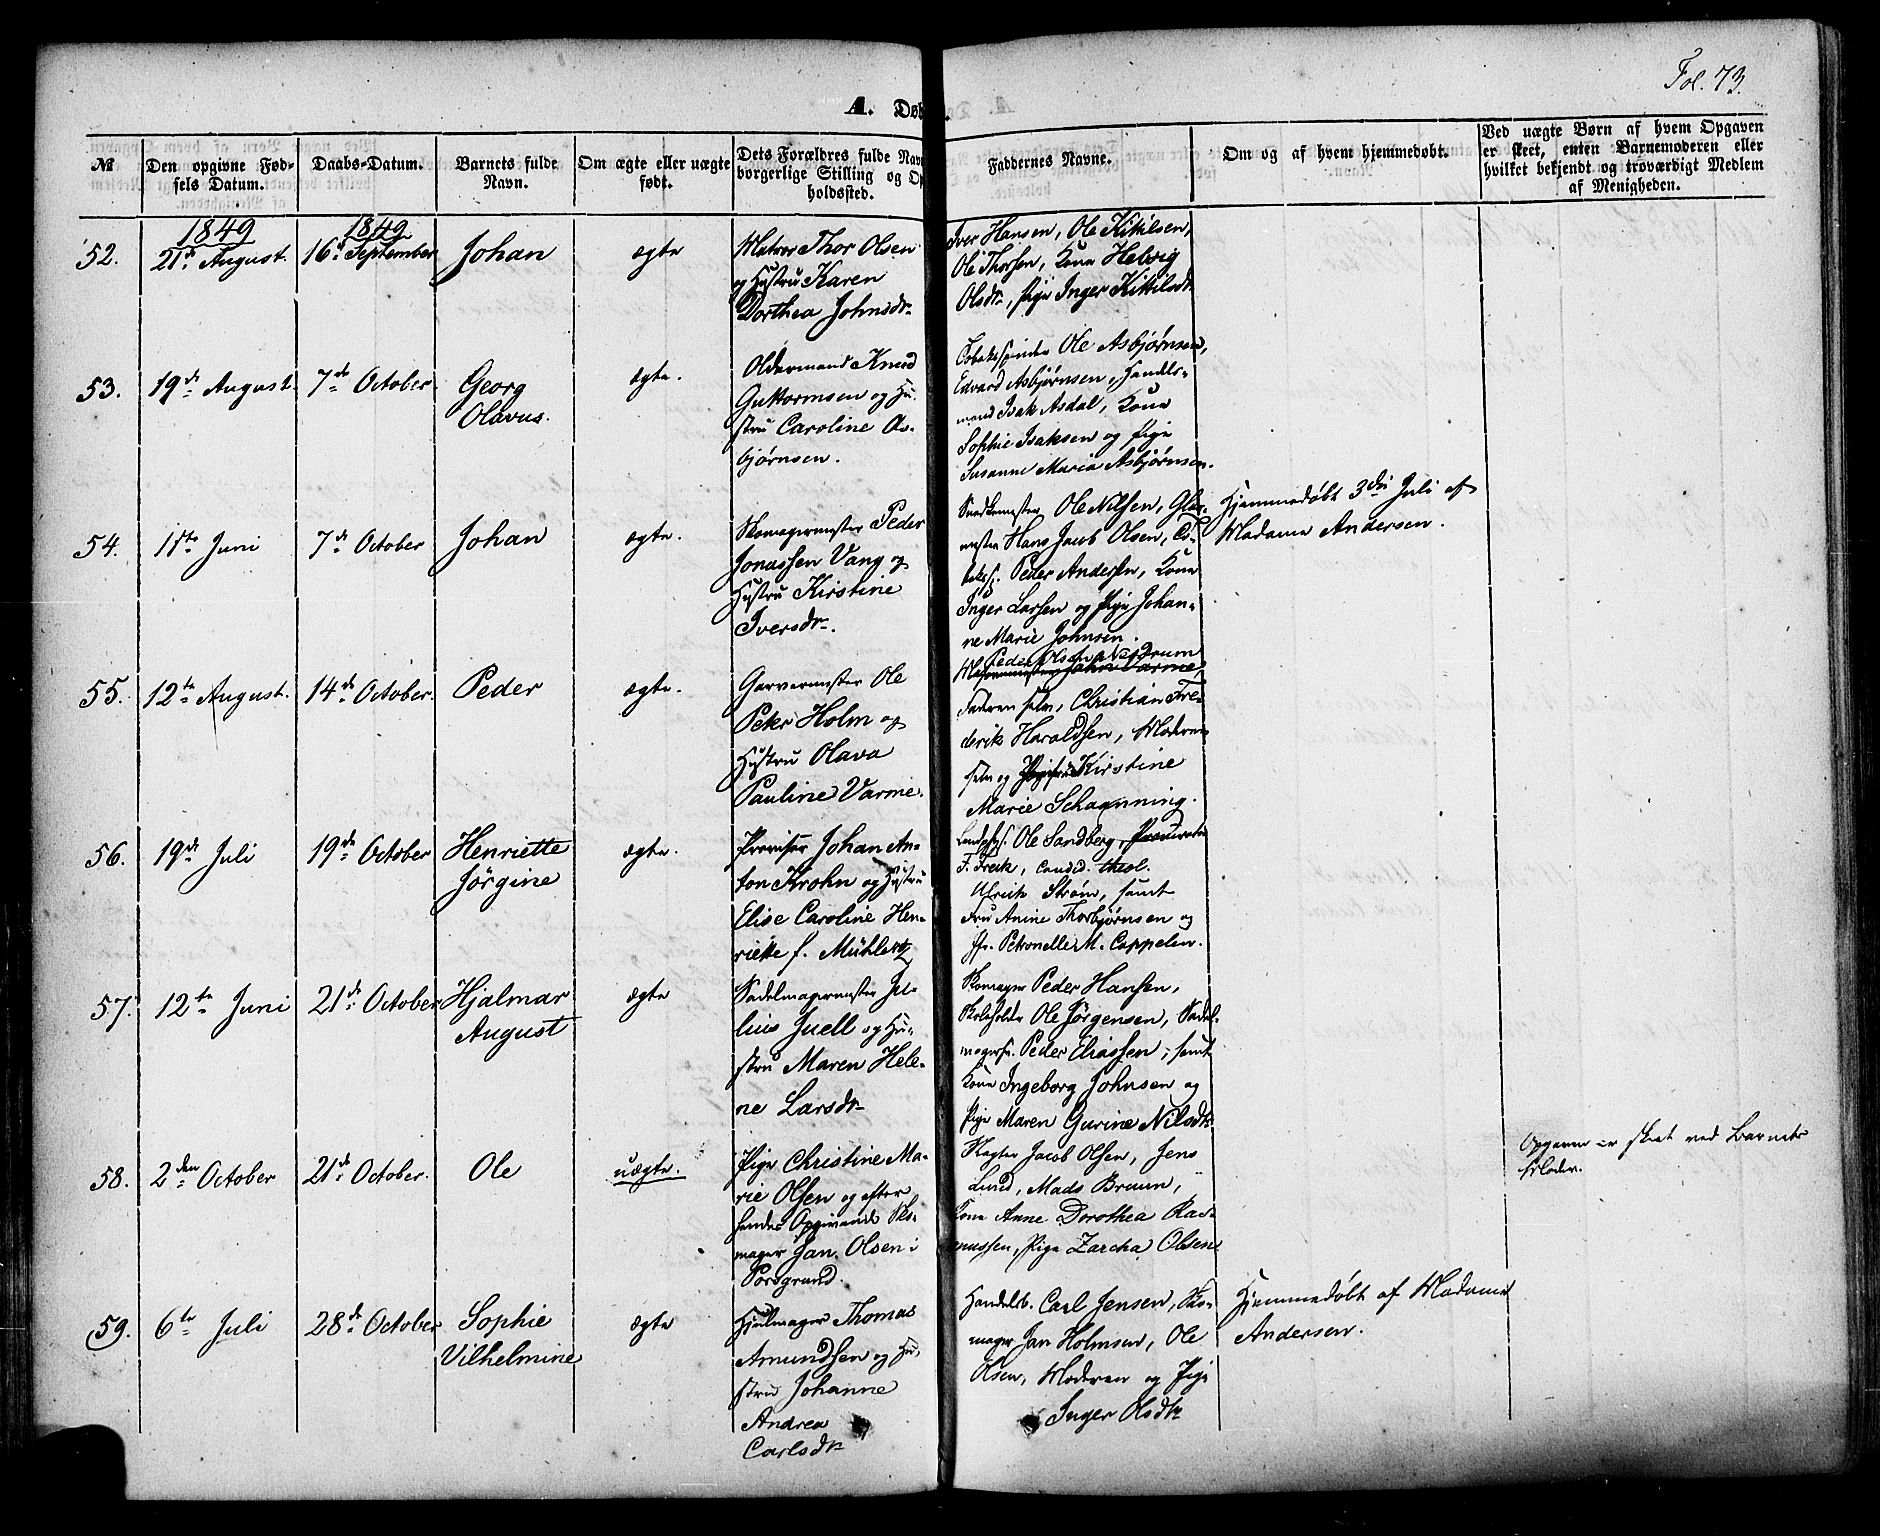 Fol. 73.
A. Døb
№
Den opgivne Fød-
sels Datum.
Daabs-Datum.
Barnets fulde
Navn.
Om ægte eller uægte
født.
Dets Forældres fulde Nav
borgerlige Stilling og Op
holdssted.
Faddernes Navne.
Om og af hvem hjemmedøbt.
Ved uægte Børn af hvem Opgaven
er skeet, enten Barnemoderen eller
hvilket bekjendt og troværdigt Medlem
af Menigheden.
1849
1849
52.
21de August.
16de September
Johan
ægte
Matros Thor Olsen
og Hustru Karen
Dorthea Johnsdr
Iver Hansen, Ole Kittilsen,
Ole Thorsen, Kone Helvig
Olsdr, Pige Inger Kittilsdr
53.
19de August.
7de October.
Georg
Olavus.
ægte.
Oldermand Knud
Guttormsen og Hu-
stru Caroline As-
bjørnsen.
Tobakspinder Ole Asbjørnsen,
Edvard Asbjørnsen, Handels-
mand Isak Asdal, Kone
Sophie Isaksen og Pige
Susanne Maria Asbjørnsen.
54.
11te Juni
7de October
Johan
ægte.
Skomagermester Peder
Jonassen Vang og
Hustru Kirstine
Iversdr.
Snedkermester Ole Nilsen, Glar-
mester Hans Jacob Olsen, To-
baksp. Peder Andersen, Kone
Inger Larsen og Pige Johan-
ne Marie Johnsen.
Hjemmedøbt 3die Juli af
Madame Andersen.
55.
12te August.
14de October.
Peder
ægte.
Garvermester Ole
Peter Holm og
Hustru Olava
Pauline Varme.
Peder Olsen Nedrum
John Varme,
Faderen selv, Christian Fre-
derik Haraldsen, Moderen
selv og Kirstine
Marie Schanning.
56.
19de Juli
19de October
Henriette
Jørgine
ægte.
Provisor Johan An-
ton Krohn og Hustru
Elise Caroline Hen-
riette f.
Ole Sandberg,
F. Freik, Candid. theol.
Ulrich Strøm, samt
Fru Anine Thorbjørnsen og
Petronelle M. Cappelen.
57.
12te Juni
21de October
Hjalmar
August
ægte
Sadelmagermester Ju-
lius Juell og Hu-
stru Maren Hele-
ne Larsdr
Skomager Peder Hansen,
Skoleholder Ole Jørgensen, Sadel-
magersv. Peder Eliassen, samt
Kone Ingeborg Johnsen og
Pige Maren Gurine Nilsdtr.
58.
2den October
21de October.
Ole
uægte.
Pige Christine Ma-
rie Olsen og efter
hendes Opgivende Sko-
mager Jan Olsen i
Porsgrund.
Jacob Olsen, Jens
Lund, Mads Bruun,
Kone Anne Dorothea Ras-
mussen, Pige Zarcha Olsen
Opgaven er skeet ved Barnets
Fader.
59.
6te Juli
28de October
Sophie
Vilhelmine
ægte
Hjulmager Thomas
Amundsen og Hu-
stru Johanne
Andrea
Carlsdr
Handelsb. Carl Jensen, Sko-
mager Jan Holmsen, Ole
Olsen, Moderen og Pige
Inger Olsdtr
Hjemmedøbt af Madame
Andersen.